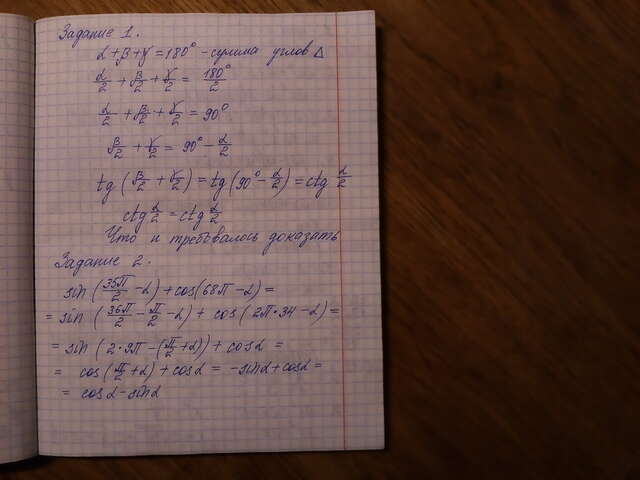 Задание 1.
α + β + γ = 180° - сумма углов Δ
α/2 + β/2 + γ/2 = 180°/2
α/2 + β/2 + γ/2 = 90°
β/2 + γ/2 = 90° - α/2
tg(β/2 + γ/2) = tg(90° - α/2) = ctg α/2
ctg α/2 = ctg α/2
Что и требовалось доказать
Задание 2.
sin(35π/2 - α) + cos(68π - α) =
= sin(36π/2 - π/2 - α) + cos(2π·34 - α) =
= sin(2·9π - (π/2 + α)) + cos α =
= cos(π/2 + α) + cos α = -sin α + cos α =
= cos α - sin α